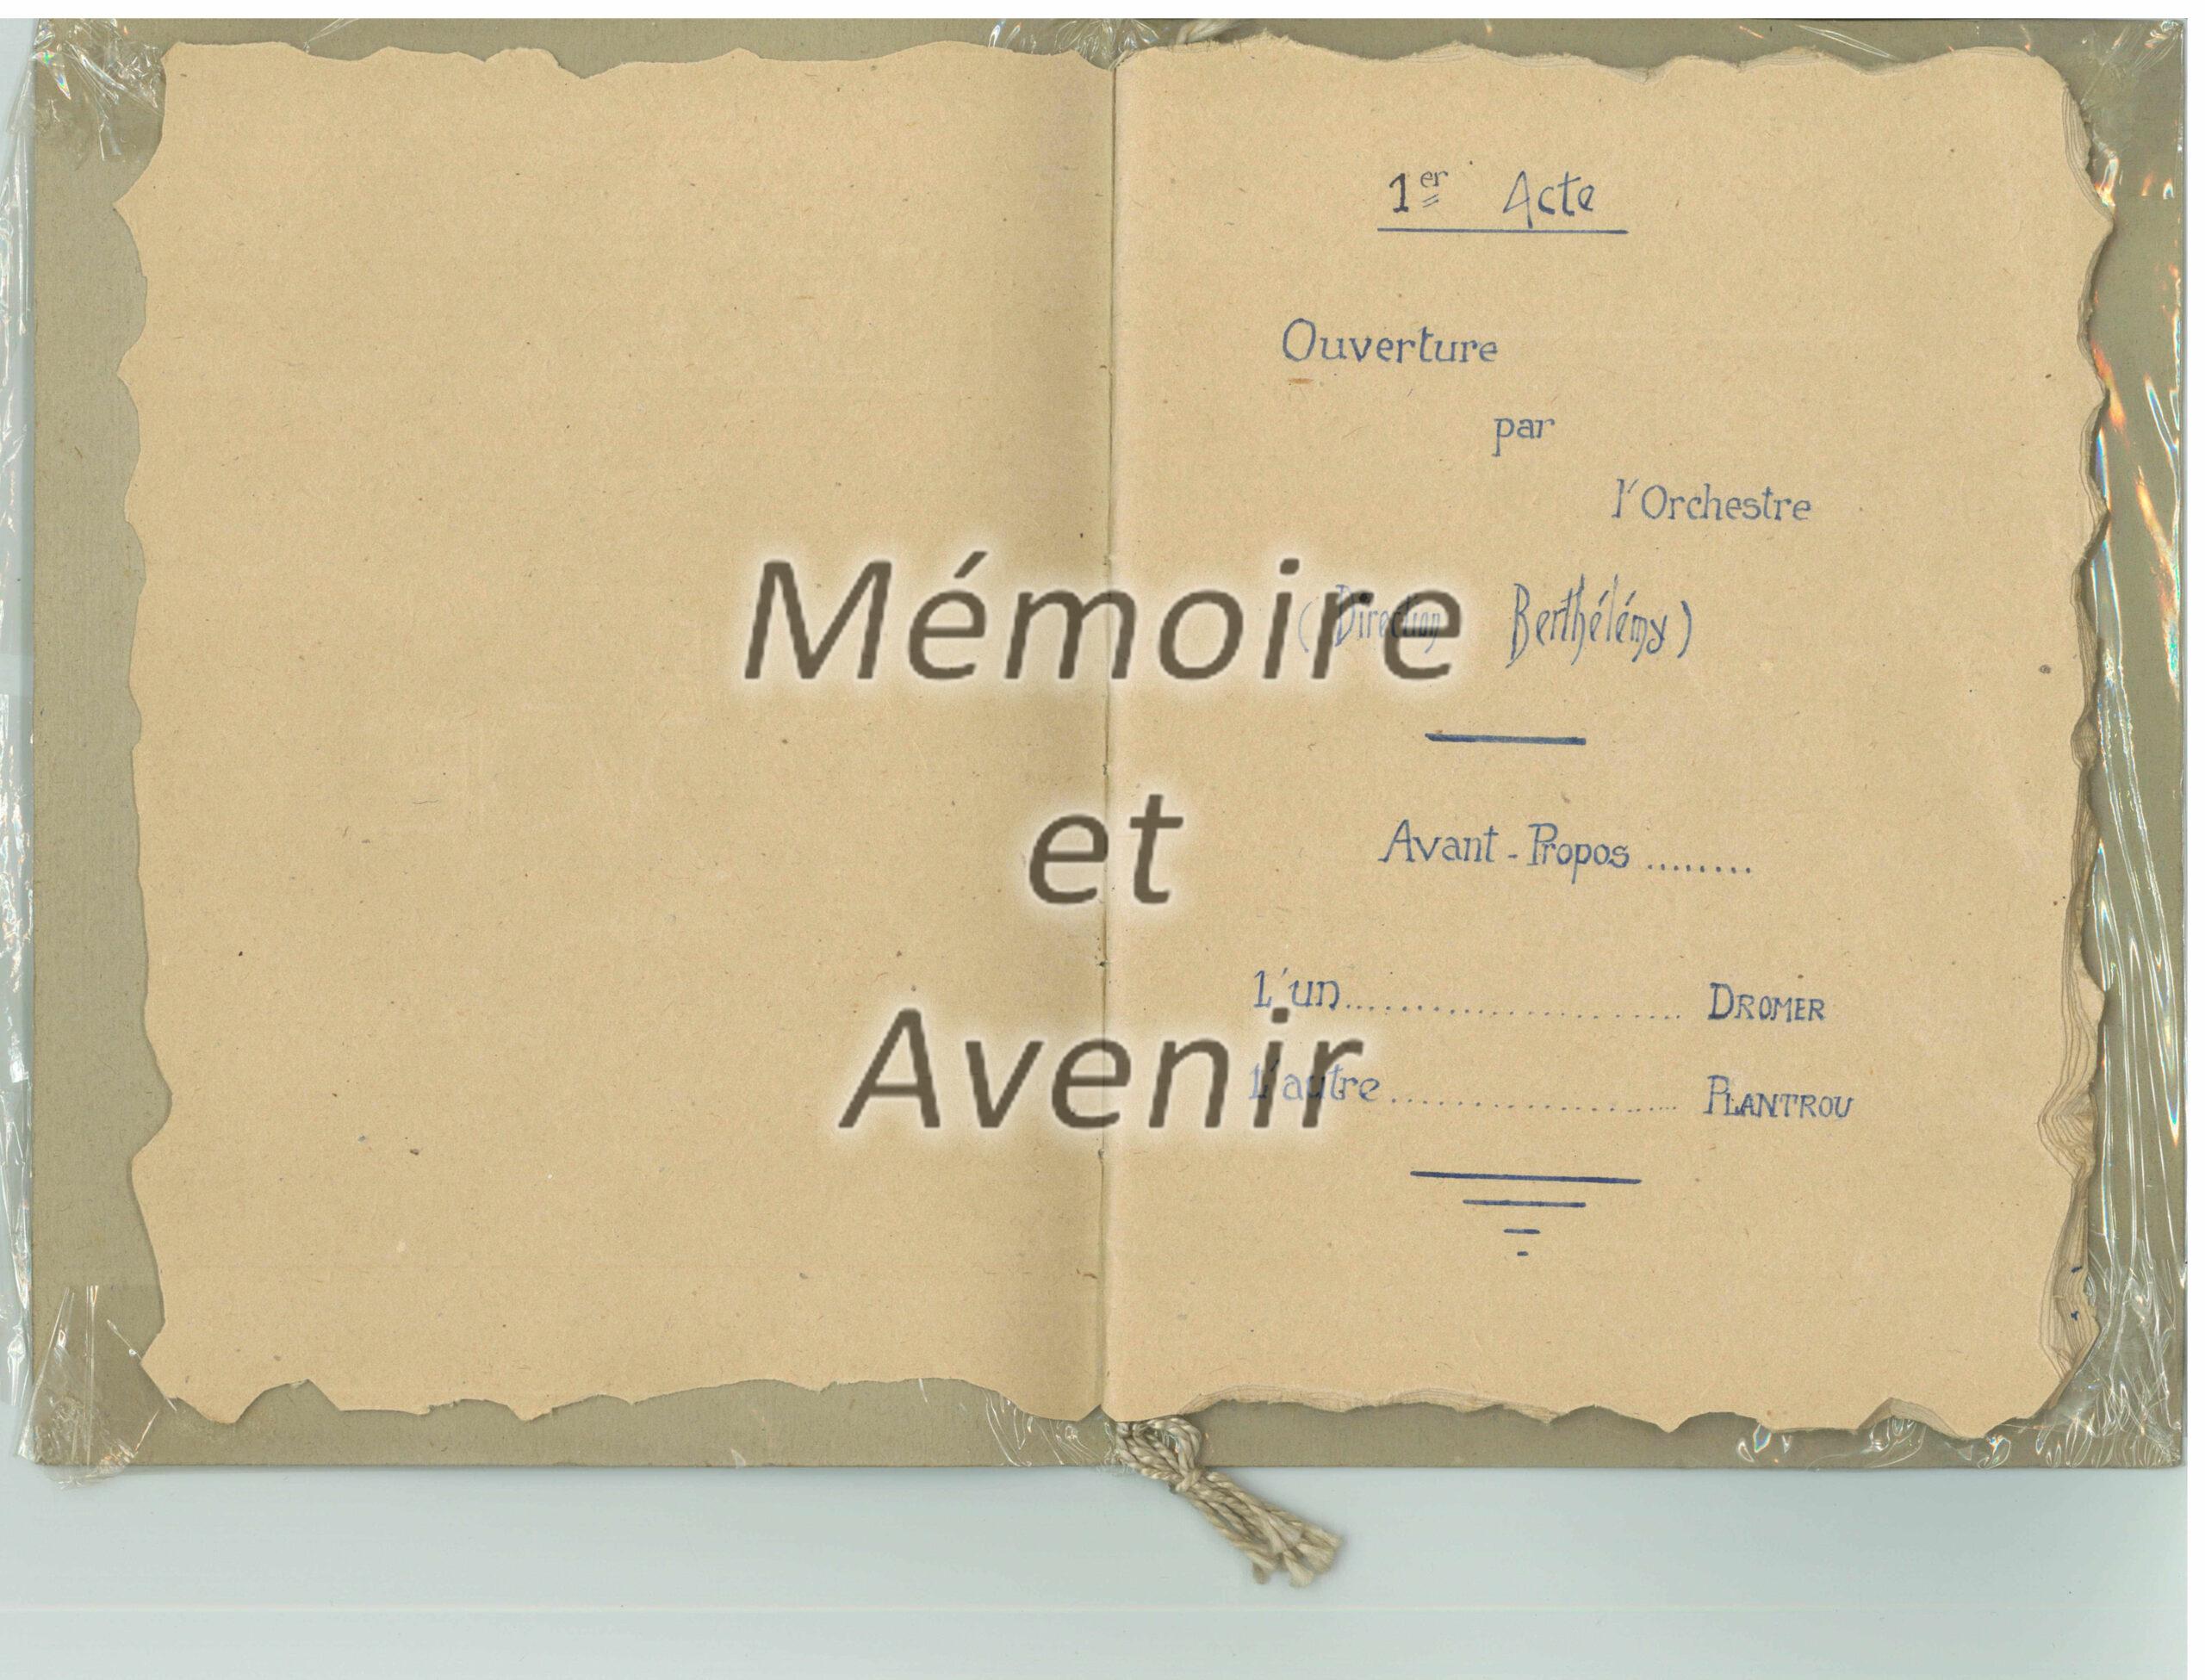 1er Acte
Ouverture
par
l'Orchestre
(Direction Berthélémy)
Avant-Propos ........
L'un........................ DROMER
L'autre........................ PLANTROU
Mémoire
et
Avenir